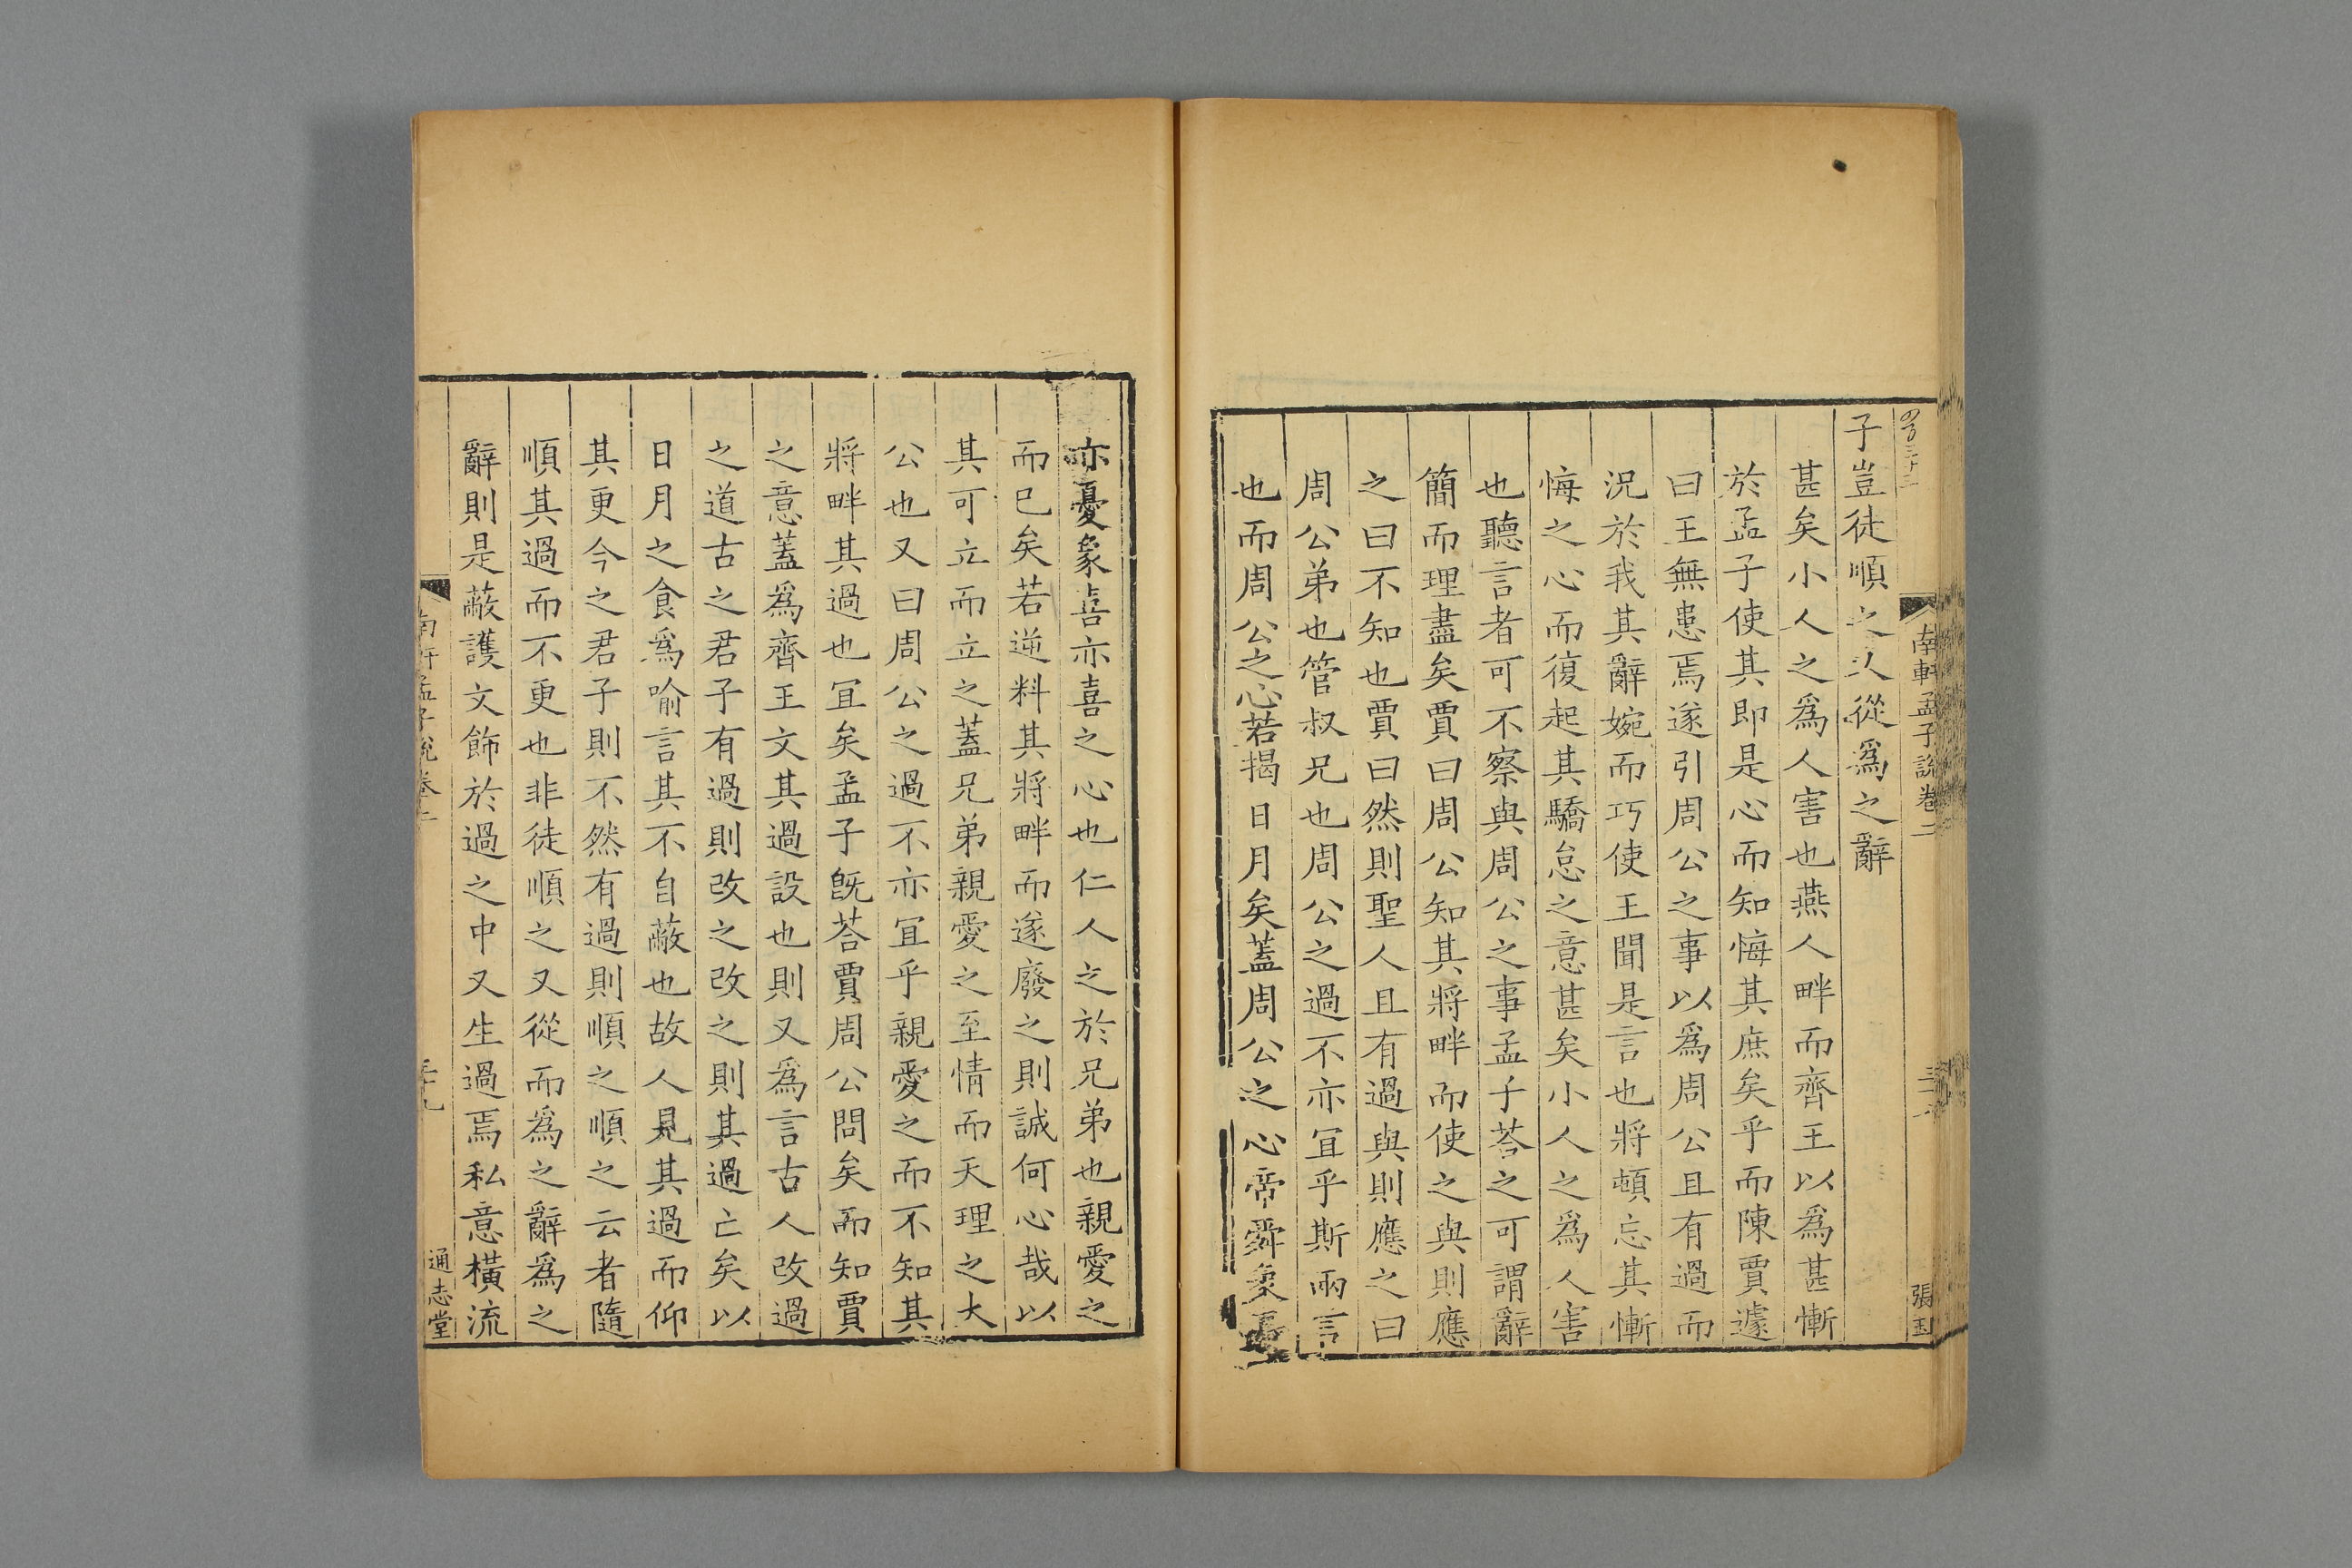 南軒孟子說卷二
張玉
子豈徒順之又從爲之辭
甚矣小人之爲人害也燕人畔而齊王以爲甚慚
於孟子使其即是心而知悔其庶矣乎而陳賈遽
曰王無患焉遂引周公之事以爲周公且有過而
況於我其辭婉而巧使王聞是言也將頓忘其慚
悔之心而復起其驕怠之意甚矣小人之爲人害
也聽言者可不察與周公之事孟子荅之可謂辭
簡而理盡矣賈曰周公知其將畔而使之與則應
之曰不知也賈曰然則聖人且有過與則應之曰
周公弟也管叔兄也周公之過不亦宜乎斯兩言
也而周公之心若揭日月矣蓋周公之心帝舜象憂
亦憂象喜亦喜之心也仁人之於兄弟也親愛之
而巳矣若逆料其將畔而遂廢之則誠何心哉以
其可立而立之蓋兄弟親愛之至情而天理之大
公也又曰周公之過不亦宜乎親愛之而不知其
將畔其過也宜矣孟子旣荅賈周公問矣而知賈
之意蓋爲齊王文其過設也則又爲言古人改過
之道古之君子有過則改之改之則其過亡矣以
日月之食爲喻言其不自蔽也故人見其過而仰
其更今之君子則不然有過則順之順之云者隨
順其過而不更也非徒順之又從而爲之辭爲之
辭則是蔽護文飾於過之中又生過焉私意橫流
南軒孟子說卷二
三十九
通志堂